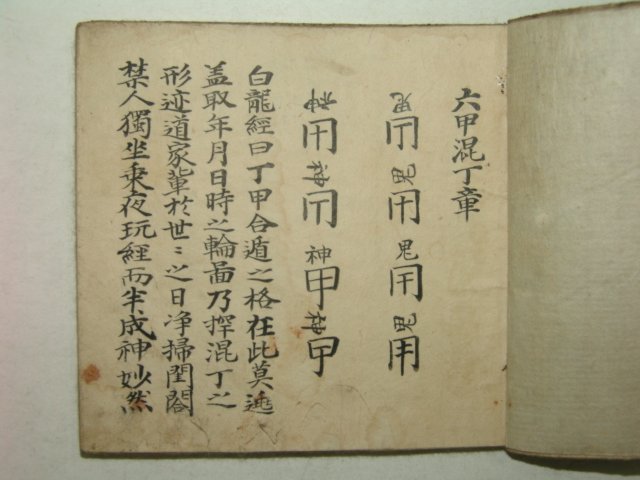 六甲混丁章
鬼 鬼 鬼 鬼 用
神 神 神 甲 神
白龍經曰丁甲合遁之格在此莫逃
盖取年月日時之輪啚乃混丁之
形迹道家軰於世〻之日净掃閨閤
禁人獨坐乗夜玩經而半成神妙然